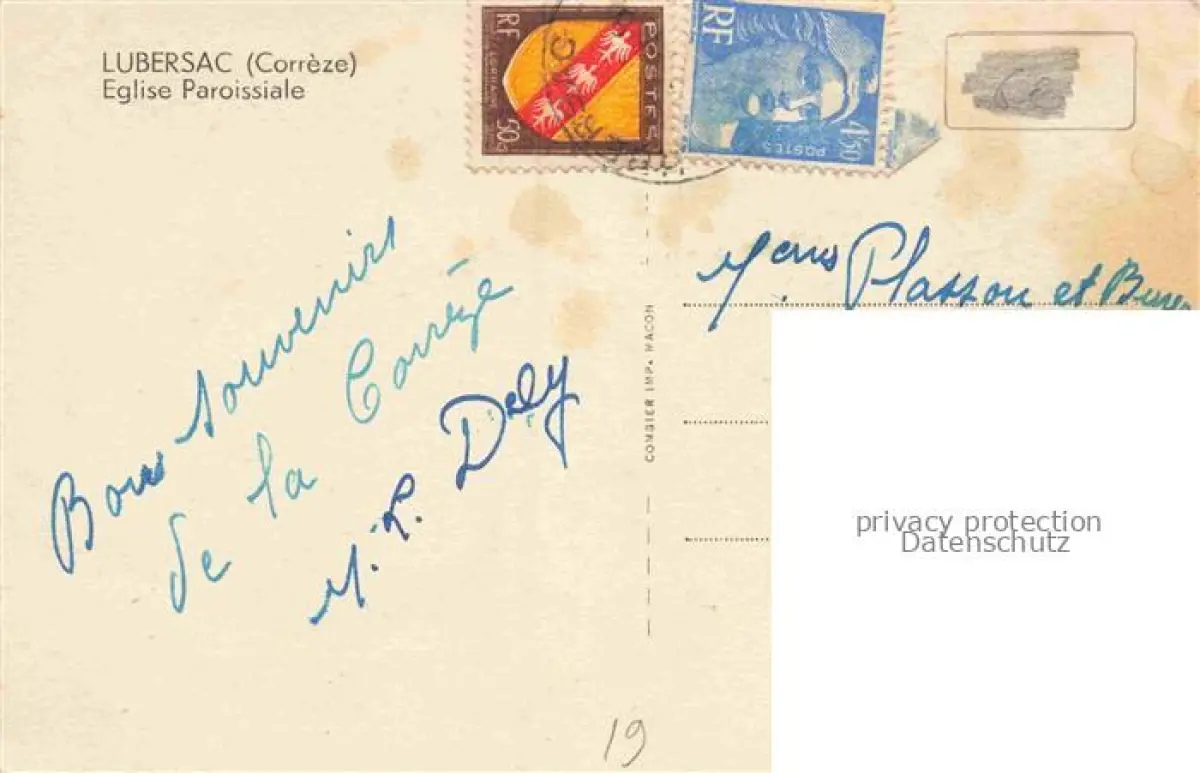 LUBERSAC (Corrèze)
Eglise Paroissiale
RF
POSTES
50c
RF
POSTES
4f50
Bons souvenirs
de la Corrèze
M. R. Dely
COMBIER IMP. MACON
Mons Plasson et
privacy protection
Datenschutz
19